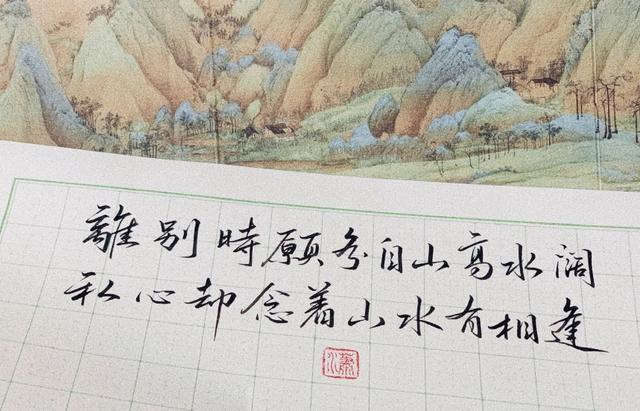 離别時願各自山高水阔
私心却念着山水有相逢